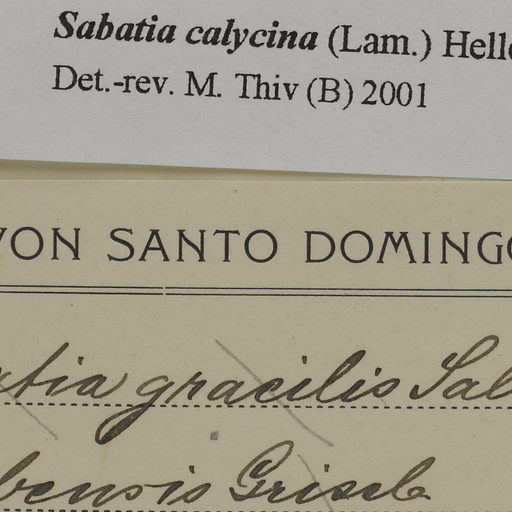 Sabatia calycina (Lam.) Helle
Det.-rev. M. Thiv (B) 2001
VON SANTO DOMINGO
atia gracilis Sal
bensis Griseb